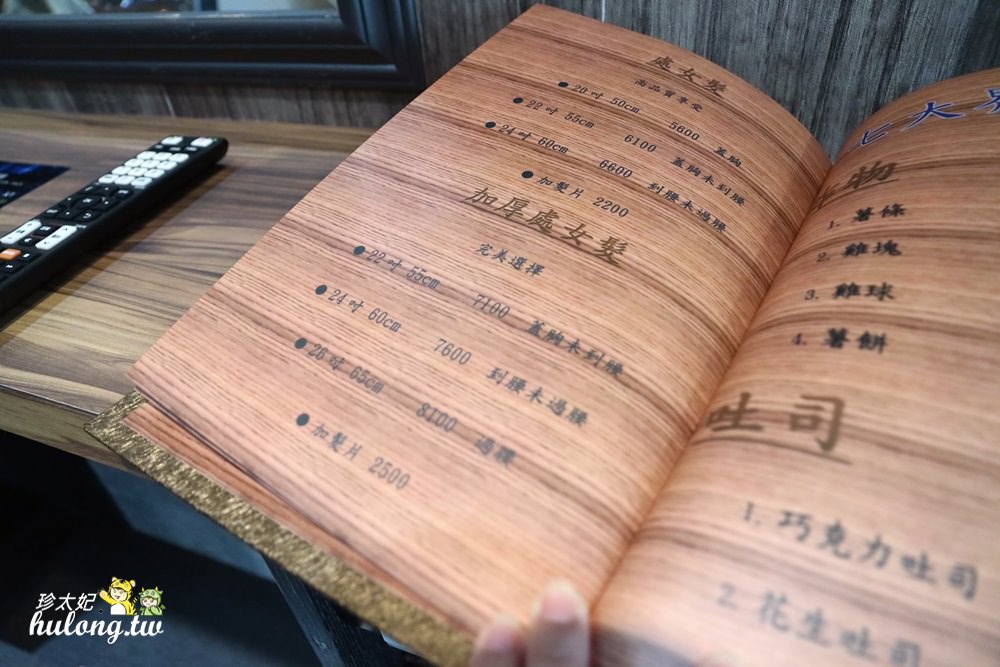 處女髮
高品質享受
●20吋 50cm 5600 蓋胸
●22吋 55cm 6100 蓋胸未到腰
●24吋 60cm 6600 到腰未過腰
●加髮片 2200
加厚處女髮
完美選擇
●22吋 55cm 7100 蓋胸未到腰
●24吋 60cm 7600 到腰未過腰
●26吋 65cm 8100 過腰
●加髮片 2500
七大
物
1. 薯條
2. 雞塊
3. 雞球
4. 薯餅
吐司
1. 巧克力吐司
2. 花生吐司
珍太妃
hulong.tw